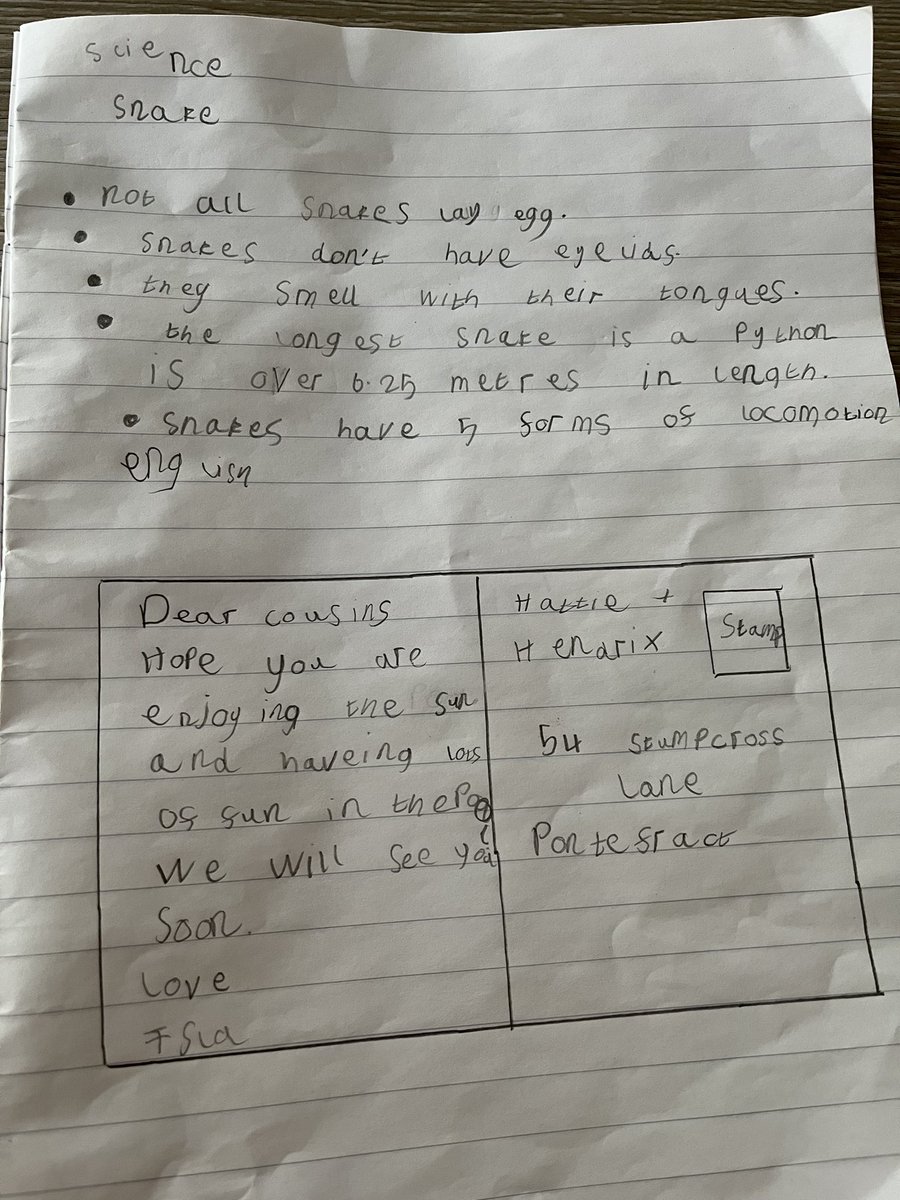 science
snake
• not all snakes lay egg.
• snakes don't have eyelids.
• they smell with their tongues.
• the longest snake is a Python
is over 6.25 metres in length.
• snakes have 5 forms of locomotion
english
Dear cousins
Hope you are
enjoying the sun
and haveing lots
of sun in the Pool
we will see you
soon.
Love
Hattie +
Hendrix
Stamp
54 stumpcross
lane
Pontefract